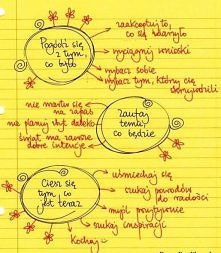 zaakceptuj to,
co się zdarzyło
Pogódź się
z tym,
co było
wyciągnij wnioski
wybacz sobie
wybacz tym, którzy cię
skrzywdzili
nie martw się
na zapas
nie planuj zbyt daleko
świat ma zawsze
dobre intencje
Zaufaj
temu,
co będzie
Ciesz się
tym, co
jest teraz
uśmiechaj się
szukaj powodów
do radości
myśl pozytywnie
szukaj inspiracji
Kochaj